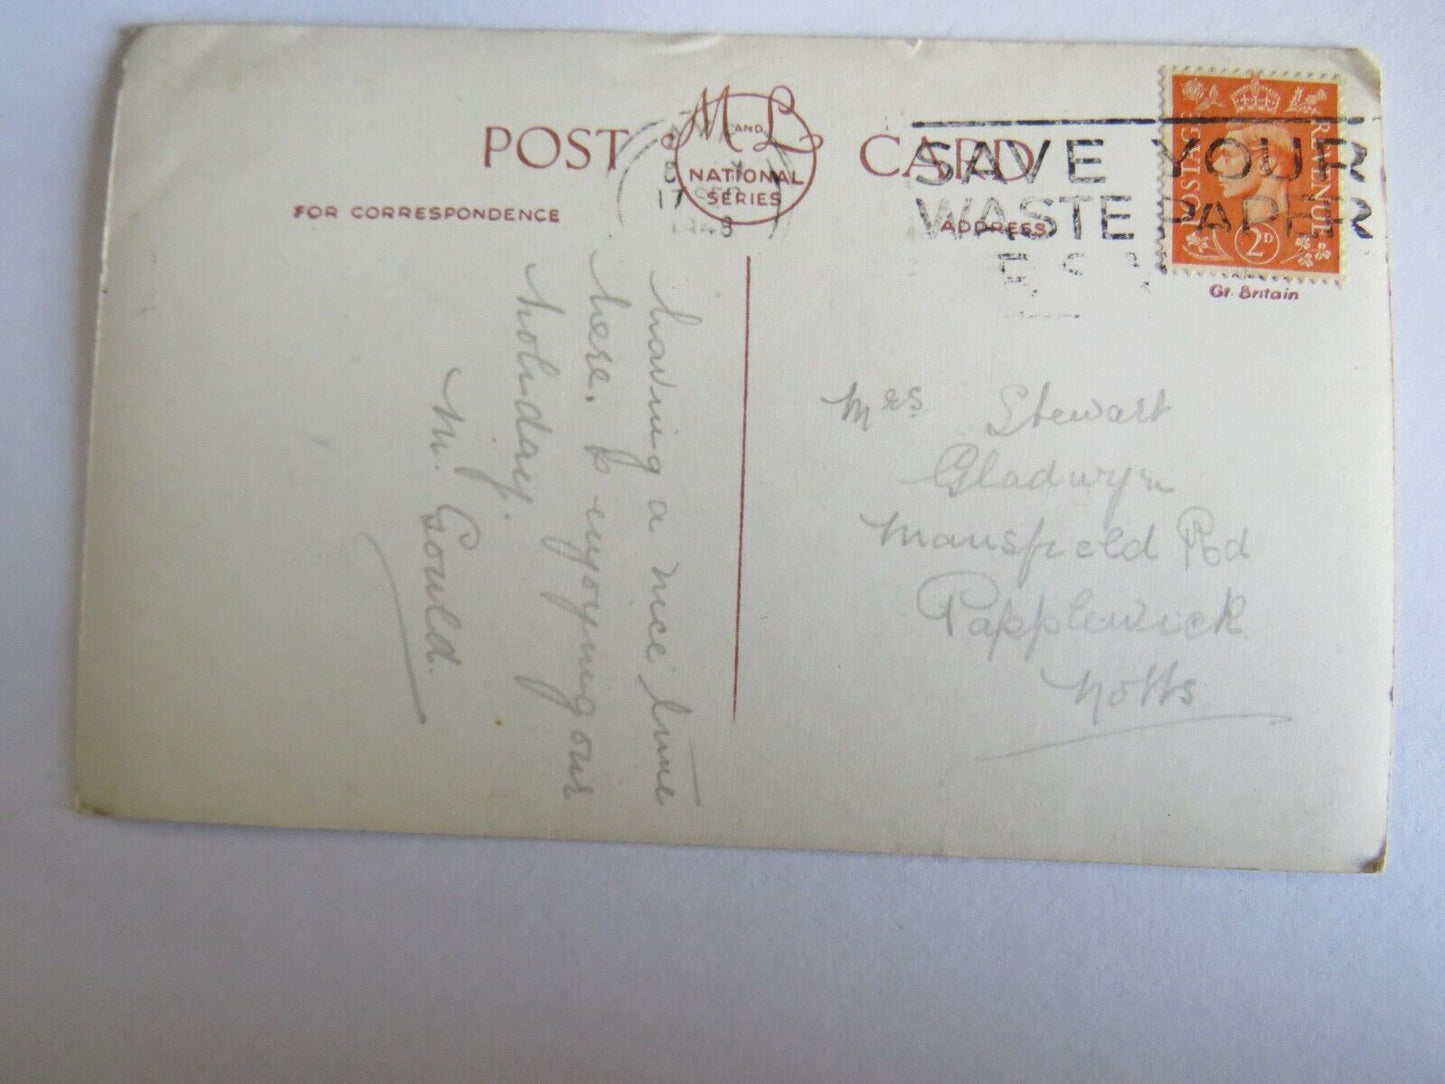 POST CARD
M AND L
NATIONAL
SERIES
FOR CORRESPONDENCE
ADDRESS
17 SEP
1948
SAVE YOUR
WASTE PAPER
POSTAGE REVENUE
2D
Gt. Britain
having a nice time
here. & enjoying our
holiday.
M. Gould.
Mrs Stewart
Gladwyn
Mansfield Rd
Papplewick
Notts